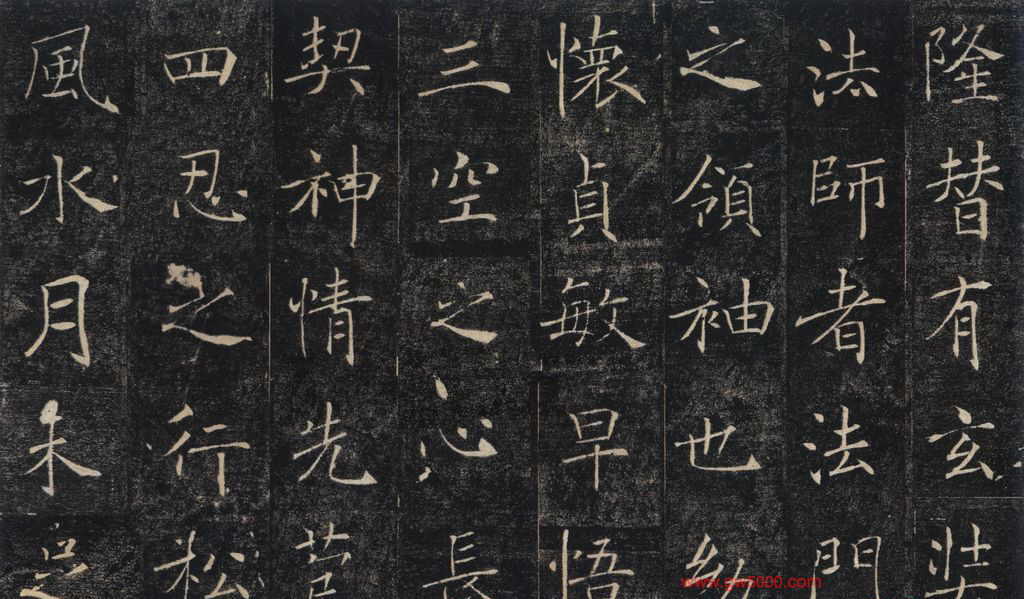 隆替有玄奘
法師者法門
之領袖也幼
懷貞敏早悟
三空之心長
契神情先苞
四忍之行松
風水月未足
www.gw5000.com